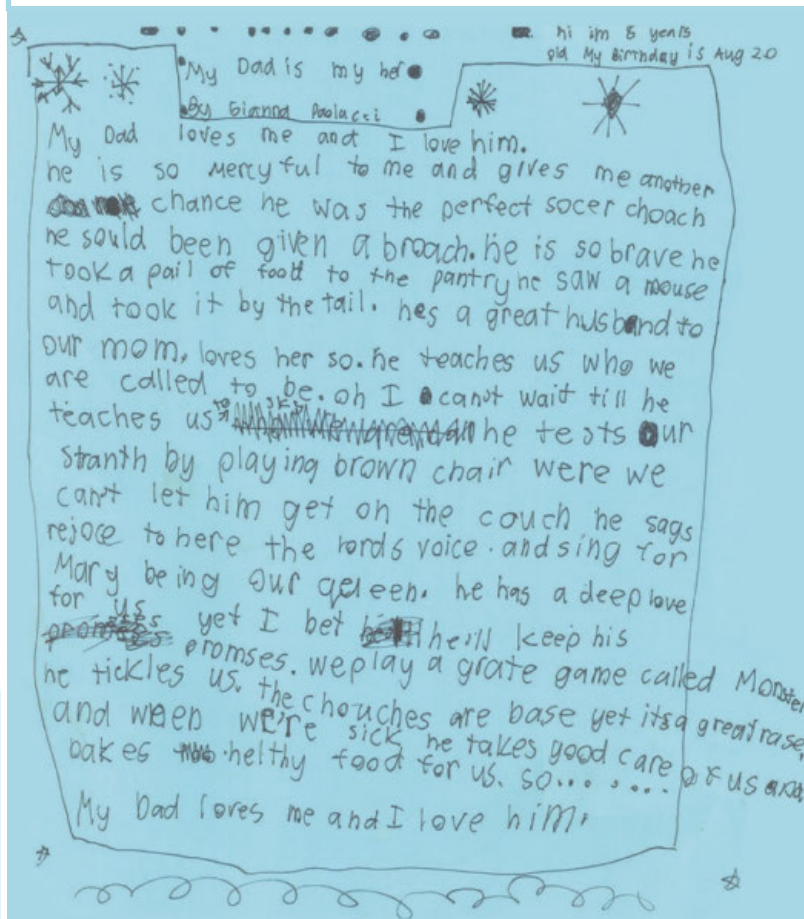 hi im 8 years
old My Birthday is Aug 20
My Dad is my hero
By Gianna Paolacci
My Dad loves me and I love him.
he is so Mercyful to me and gives me another
chance he was the perfect socer choach
he sould been given a broach. he is so brave he
took a pail of food to the pantry he saw a mouse
and took it by the tail. hes a great husband to
our mom, loves her so. he teaches us who we
are called to be. oh I can't wait till he
teaches us to ski he tests our
stranth by playing brown chair were we
can't let him get on the couch he says
rejoce to here the lords voice. and sing for
Mary being our qeeen. he has a deep love
for us yet I bet he'll keep his
promses. we play a grate game called Monster
he tickles us. the chouches are base yet its a great rase,
and ween we're sick he takes good care of us and
bakes helthy food for us. so.......
My Dad loves me and I love him.